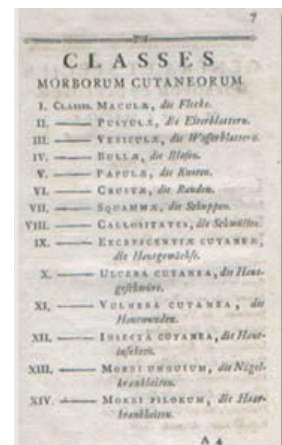 7
CLASSES
MORBORUM CUTANEORUM
I. CLASSIS. MACULÆ, die Flecke.
II. —— PUSTULÆ, die Eiterblattern.
III. —— VESICULÆ, die Wasserblattern.
IV. —— BULLÆ, die Blasen.
V. —— PAPULÆ, die Knoten.
VI. —— CRUSTÆ, die Randen.
VII. —— SQUAMMÆ, die Schuppen.
VIII. —— CALLOSITATES, die Schwülen.
IX. —— EXCRESCENTIÆ CUTANEÆ,
die Hautgewächse.
X. —— ULCERA CUTANEA, die Haut-
geschwüre.
XI. —— VULNERA CUTANEA, die
Hautwunden.
XII. —— INSECTA CUTANEA, die Haut-
insekten.
XIII. —— MORBI UNGUIUM, die Nägel-
krankheiten.
XIV. —— MORBI PILORUM, die Haar-
krankheiten.
A 4